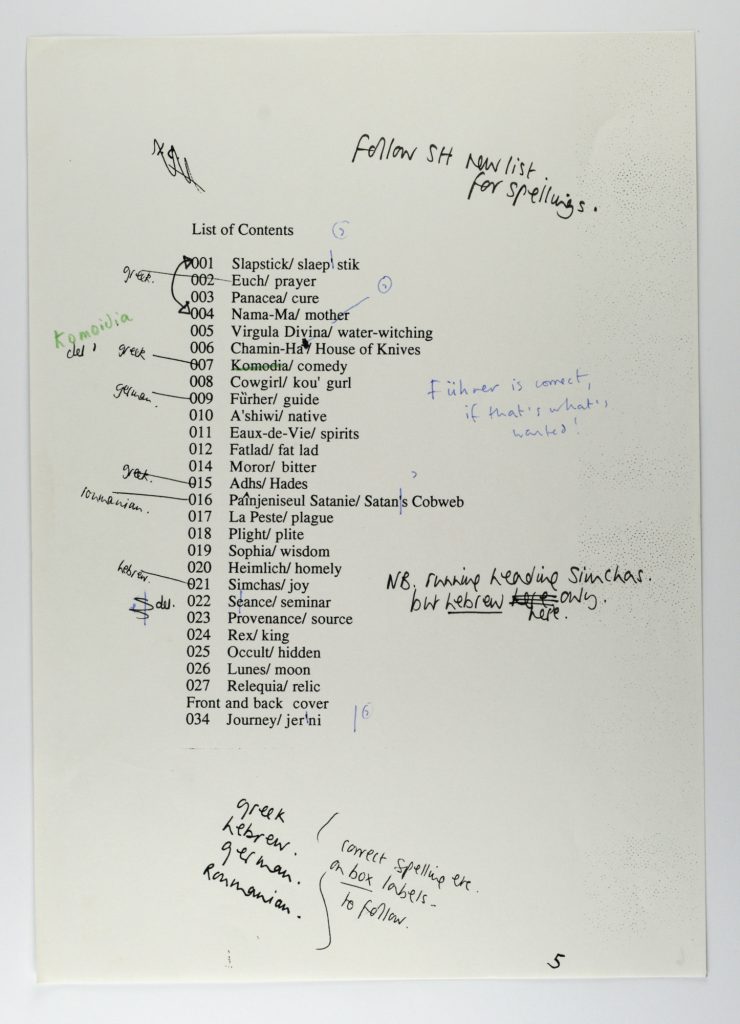 Follow SH new list.
for spellings.
List of Contents
001 Slapstick/ slaep stik
greek.
002 Euch/ prayer
003 Panacea/ cure
004 Nama-Ma/ mother
005 Virgula Divina/ water-witching
Komoidia
006 Chamin-Ha'/ House of Knives
del
greek
007 Komodia/ comedy
008 Cowgirl/ kou' gurl
german.
009 Fürher/ guide
Führer is correct,
if that's what's
wanted!
010 A'shiwi/ native
011 Eaux-de-Vie/ spirits
012 Fatlad/ fat lad
014 Moror/ bitter
greek.
015 Adhs/ Hades
roumanian.
016 Painjeniseul Satanie/ Satan's Cobweb
017 La Peste/ plague
018 Plight/ plite
019 Sophia/ wisdom
020 Heimlich/ homely
hebrew.
021 Simchas/ joy
NB. running heading Simchas.
but hebrew here only.
here.
del.
022 Seance/ seminar
023 Provenance/ source
024 Rex/ king
025 Occult/ hidden
026 Lunes/ moon
027 Relequia/ relic
Front and back cover
034 Journey/ jer'ni
greek
hebrew.
german.
Roumanian.
correct spelling etc.
on box labels -
to follow.
5